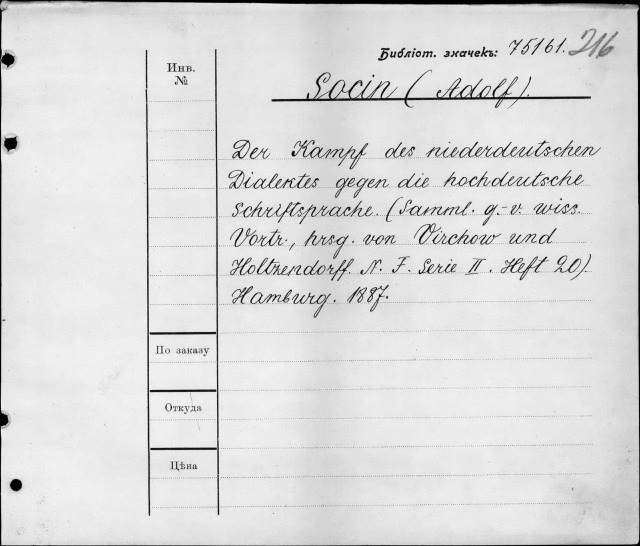 Библіот. значекъ: 75161. 216
Инв.
№
Socin (Adolf).
Der Kampf des niederdeutschen
Dialektes gegen die hochdeutsche
Schriftsprache. (Samml. g.-v. wiss.
Vortr., hrsg. von Virchow und
Holtzendorff. N. F. Serie II. Heft 20).
Hamburg. 1887.
По заказу
Откуда
Цѣна